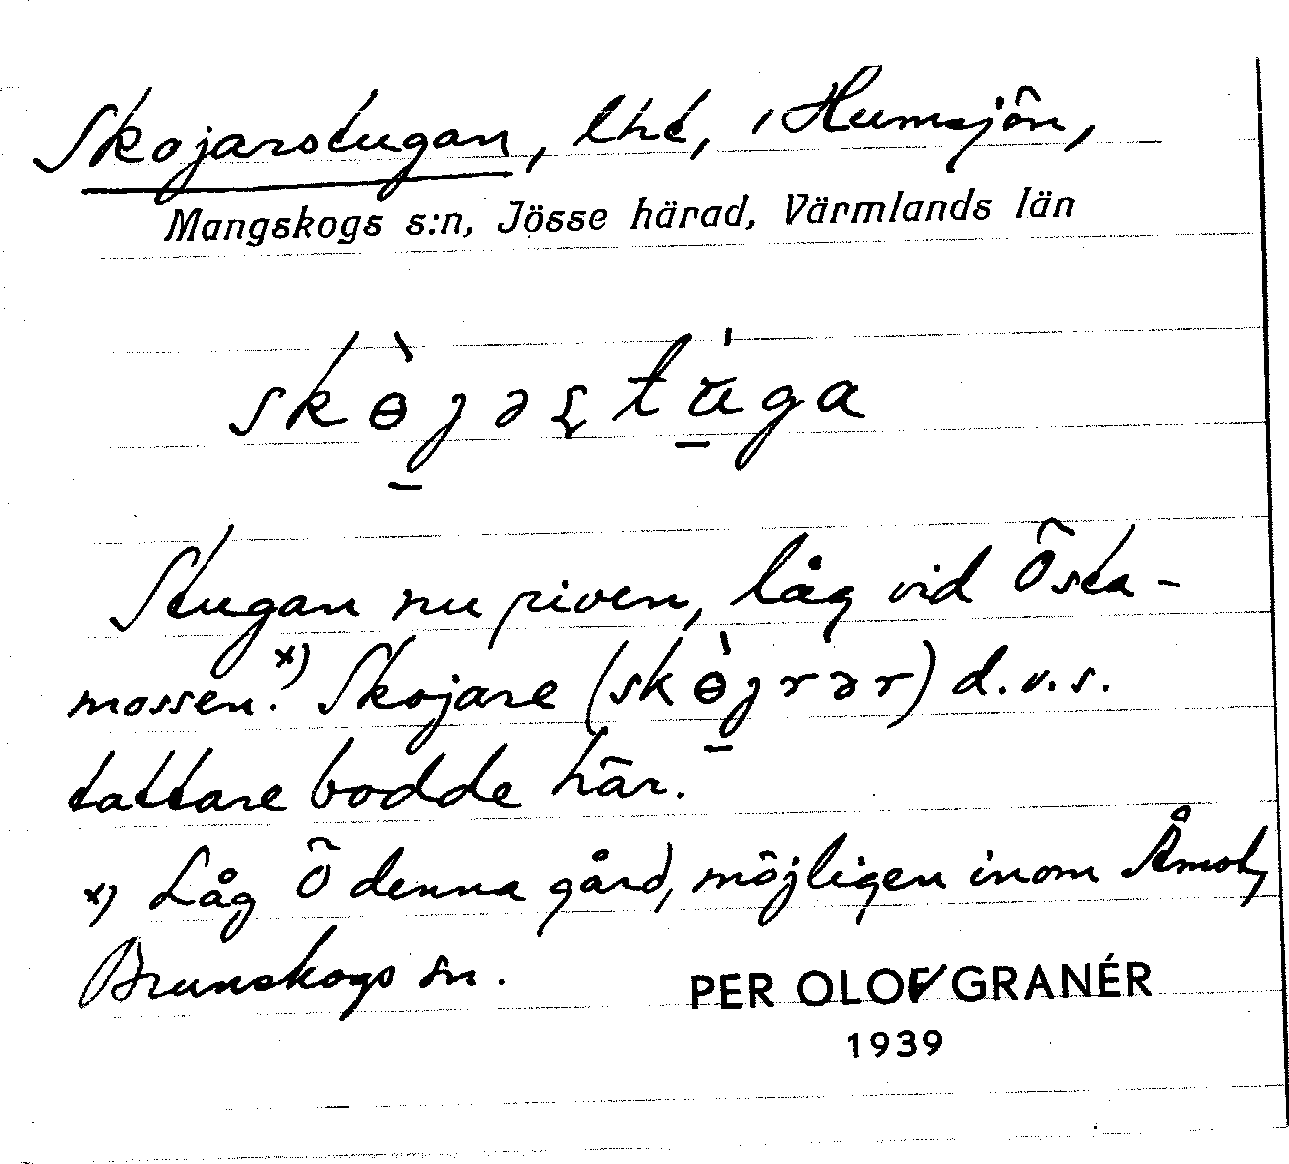 Skojarstugan, lht, i Humsjön,
Mangskogs s:n, Jösse härad, Värmlands län
Stugan nu riven, låg vid Östa-
mossen.x) Skojare (skɵ̀jrər) d.v.s.
tattare bodde här.
x) Låg Ö denna gård, möjligen inom Åmot,
Brunskogs sn.
PER OLOF GRANÉR
1939